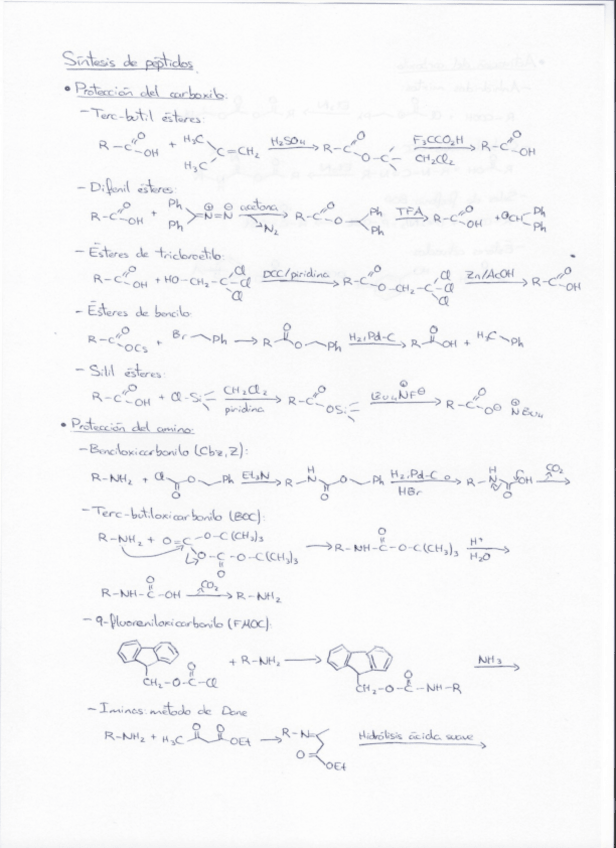 Síntesis de péptidos
• Protección del carboxilo:
- Terc-butil ésteres:
R-C(=O)OH + H3C H3C C=CH2 H2SO4 → R-C(=O)O-C F3CCO2H CH2Cl2 → R-C(=O)OH
- Difenil ésteres:
R-C(=O)OH + Ph Ph =N=N acetona N2 → R-C(=O)O Ph Ph TFA → R-C(=O)OH + Ph Ph
- Ésteres de tricloroetilo:
R-C(=O)OH + HO-CH2-C Cl Cl Cl DCC/piridina → R-C(=O)O-CH2-C Cl Cl Cl Zn/AcOH → R-C(=O)OH
- Ésteres de bencilo:
R-C(=O)OCs + Br Ph → R O O Ph H2, Pd-C → R O OH + H3C Ph
- Silil ésteres:
R-C(=O)OH + Cl-Si CH2Cl2 piridina → R-C(=O)OSi Bu4NF → R-C(=O)O NBu4
• Protección del amino:
- Benciloxicarbonilo (Cbz, Z):
R-NH2 + Cl O O Ph Et3N → R-N H O O Ph H2, Pd-C o HBr → R-N H O OH CO2 →
- Terc-butiloxicarbonilo (BOC):
R-NH2 + O=C O-C(CH3)3 O-C-O-C(CH3)3 O → R-NH-C(=O)-O-C(CH3)3 H+ H2O →
R-NH-C(=O)-OH CO2 → R-NH2
- 9-fluoreniloxicarbonilo (FMOC):
CH2-O-C(=O)-Cl + R-NH2 → CH2-O-C(=O)-NH-R NH3 →
- Iminas: método de Dane
R-NH2 + H3C O O OEt → R-N O OEt Hidrólisis ácida suave →